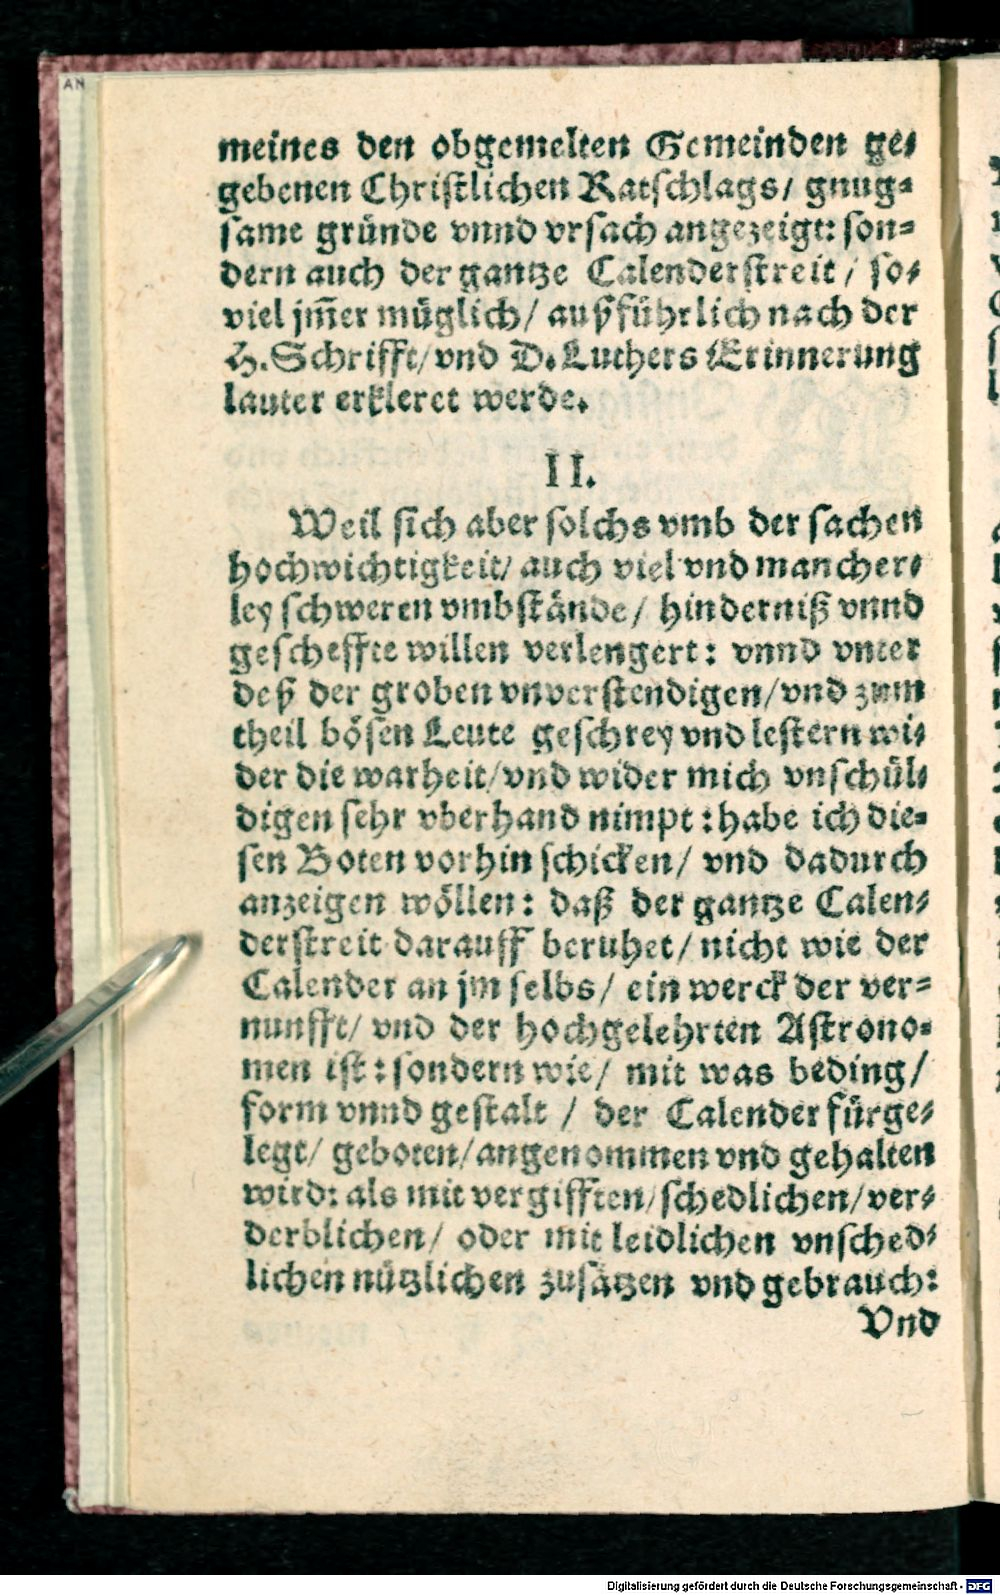 AN
meines den obgemelten Gemeinden ge-
gebenen Christlichen Ratschlags/ gnug-
same gründe vnnd vrsach angezeigt: son-
dern auch der gantze Calenderstreit / so-
viel jm̃er müglich/ außführlich nach der
H. Schrifft/ vnd D. Luthers Erinnerung
lauter erkleret werde.
II.
Weil sich aber solchs vmb der sachen
hochwichtigkeit/ auch viel vnd mancher-
ley schweren vmbstände/ hinderniß vnnd
gescheffte willen verlengert: vnnd vnter
deß der groben vnverstendigen/ vnd zum
theil bösen Leute geschrey vnd lestern wi-
der die warheit/ vnd wider mich vnschül-
digen sehr vberhand nimpt: habe ich die-
sen Boten vorhin schicken/ vnd dadurch
anzeigen wöllen: daß der gantze Calen-
derstreit darauff beruhet/ nicht wie der
Calender an jm selbs/ ein werck der ver-
nunfft/ vnd der hochgelehrten Astrono-
men ist: sondern wie/ mit was beding/
form vnnd gestalt / der Calender fürge-
legt/ geboten/ angenommen vnd gehalten
wird: als mit vergifften/ schedlichen/ ver-
derblichen/ oder mit leidlichen vnsched-
lichen nützlichen zusätzen vnd gebrauch:
Vnd
Digitalisierung gefördert durch die Deutsche Forschungsgemeinschaft - DFG